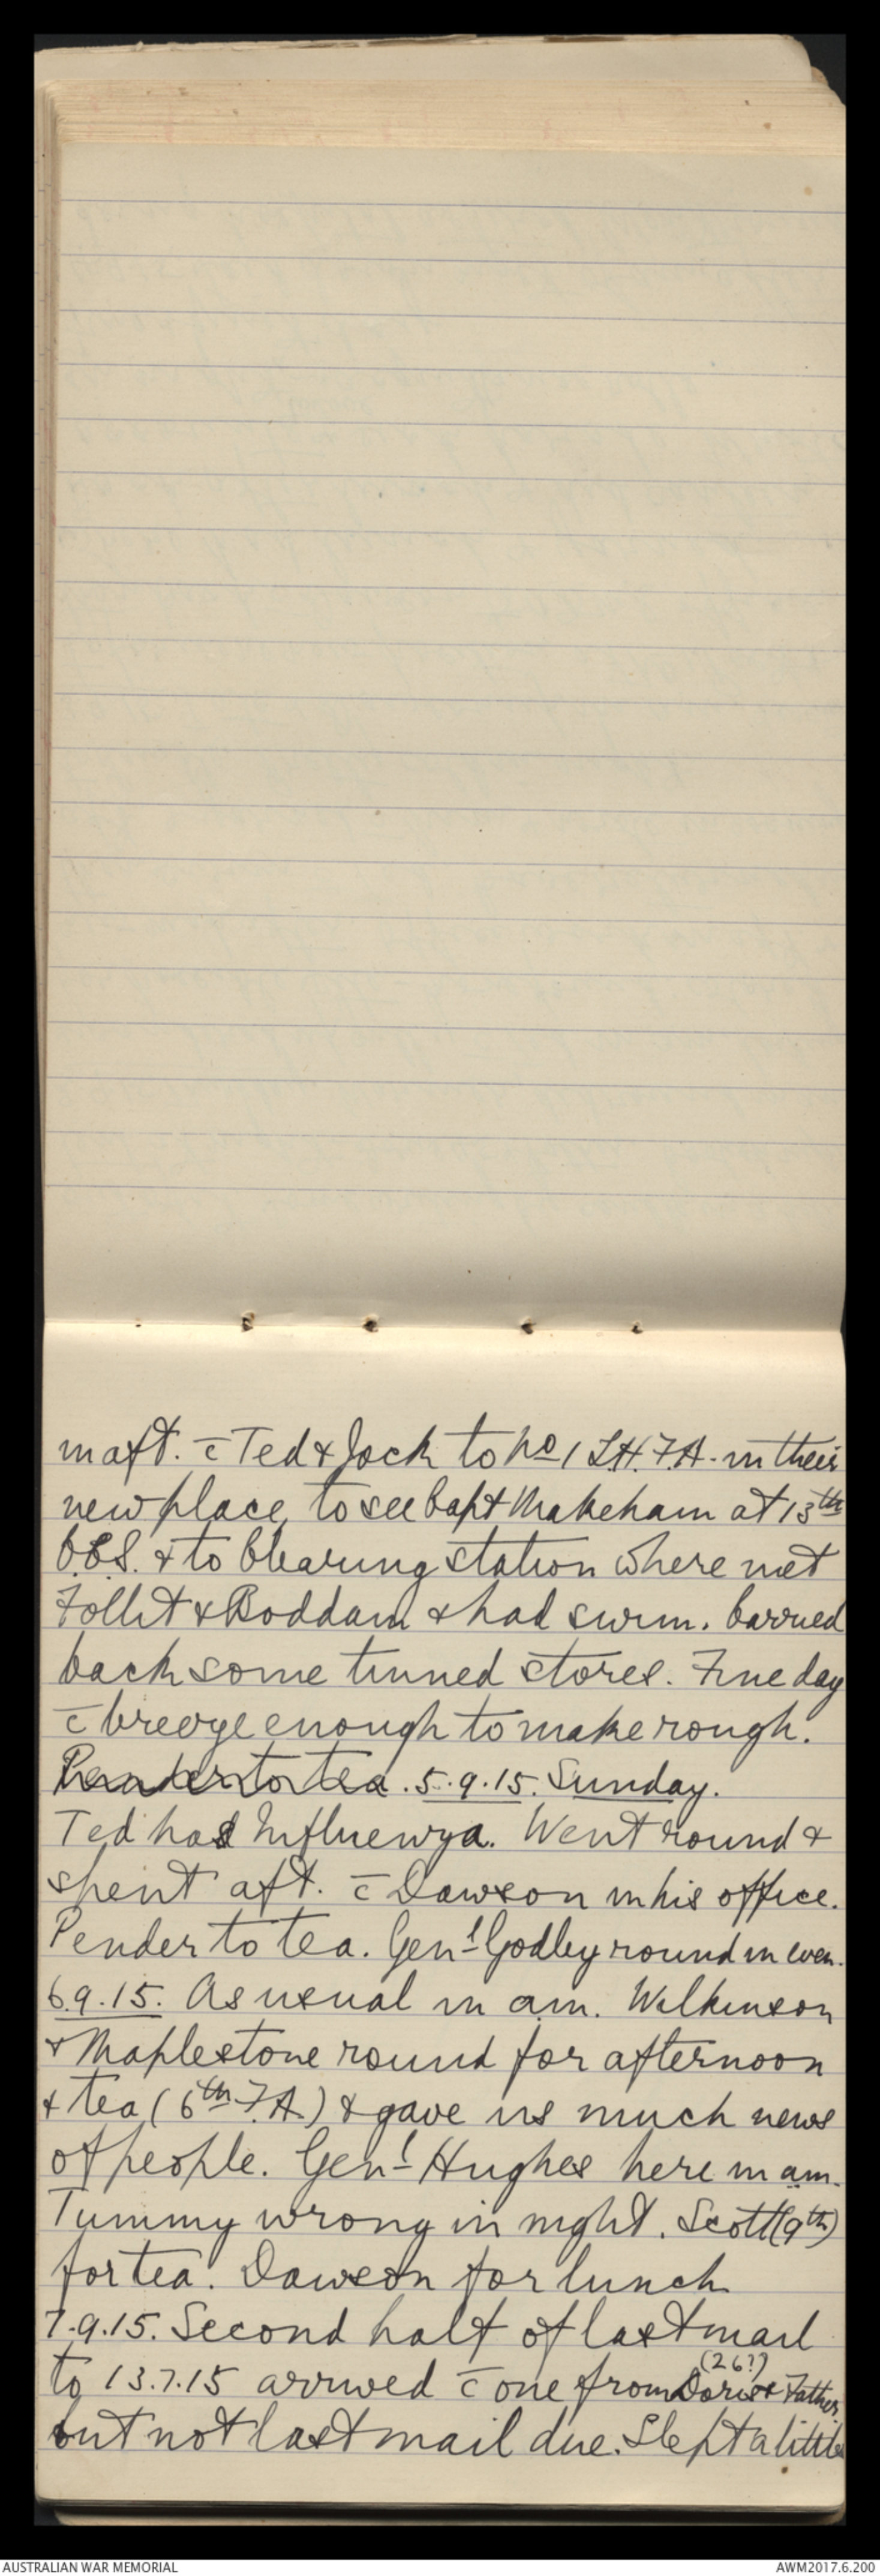 in aft. c̄ Ted & Jock to No 1 L.H.F.A. in their
new place, to see Capt Makeham at 13th
C.C.S. & to Clearing station where met
Follit & Boddam & had swim. Carried
back some tinned stores. Fine day
c̄ breeze enough to make rough.
Pender to tea. 5.9.15. Sunday.
Ted has Influenza. Went round &
spent aft. c̄ Dawson in his office.
Pender to tea. Genl Godley round in even.
6.9.15. As usual in am. Wilkinson
& Maplestone round for afternoon
& tea (6th F.A.) & gave us much news
of people. Genl Hughes here in am.
Tummy wrong in night. Scott (9th)
for tea. Dawson for lunch.
7.9.15. Second half of last mail
(26?)
to 13.7.15 arrived c̄ one from Doris & Father,
but not last mail due. Slept a little
AUSTRALIAN WAR MEMORIAL
AWM2017.6.200